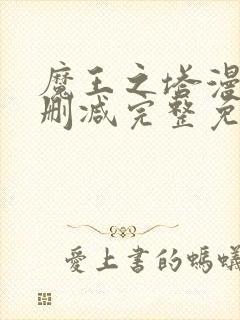 魔王之塔漫
删减完整免
愛上書的螞蟻